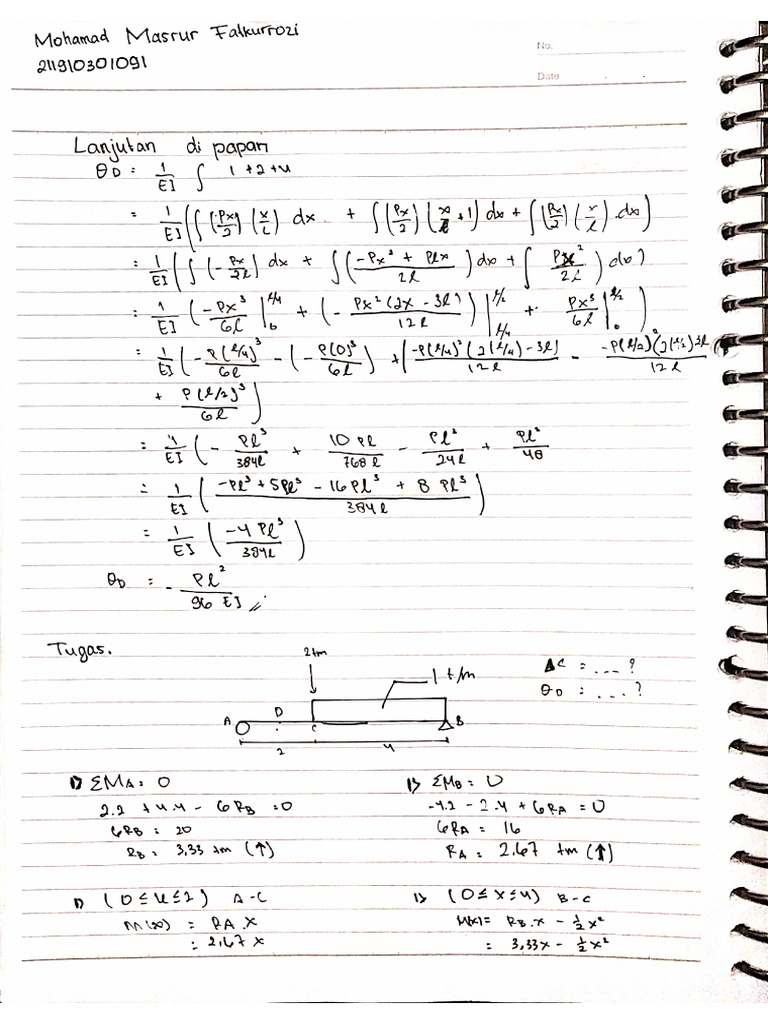 Mohamad Masrur Falkurrozi
211910301091
No.
Date
Lanjutan di papan
θD = 1/EI ∫ 1+2+4
= 1/EI (∫(-Px/2)(x/L) dx + ∫(Px/2)(x/l +1) dx + ∫(Px/2)(x/l) .dx)
= 1/EI (∫(-Px/2l) dx + ∫(-Px³ + Plx / 2l) dx + ∫ Px²/2l) dx)
= 1/EI (-Px³/6l |₀^l/4 + (- Px²(2x - 3l)/12l)|l/4^l/2 + Px³/6l |₀^l/2)
= 1/EI (- P(l/4)³/6l - (- P(0)³/6l) + (-P(l/4)²(2(l/4) - 3l)/12l - -P(l/2)²(2(l/2) 3l/12l
+ P(l/2)³/6l)
= 1/EI (- Pl³/384l + 10 Pl/768l - Pl²/24l + Pl²/48
= 1/EI (-Pl³ + 5Pl³ - 16Pl³ + 8 Pl³ / 384l)
= 1/EI (-4 Pl³/384l)
θD = - Pl²/96 EI //
Tugas.
2tm
1 t/m
ΔC = ... ?
θD = ... ?
A D C B
2 4
1) ΣMA = 0
2.2 + 4.4 - 6RB = 0
6RB = 20
RB = 3,33 tm (↑)
1) ΣMB = 0
-4.2 - 2.4 + 6RA = 0
6RA = 16
RA = 2.67 tm (↑)
1) (0 ≤ x ≤ 2) A-C
M(x) = RA.x
= 2,67 x
1) (0 ≤ x ≤ 4) B-C
M(x) = RB.x - ½x²
= 3,33x - ½x²